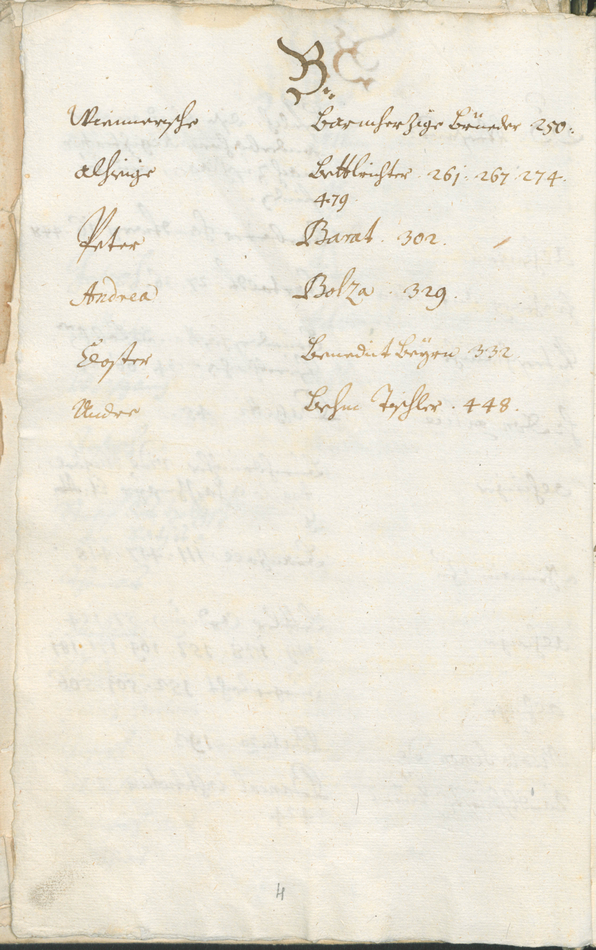 B.
Wiennerische Barmherzige Brüeder 250.
Alhiige Bettlrichter 261. 267. 274.
479.
Peter Barat. 302.
Andrea Bolza. 329.
Closter Benedict Beÿrn 332
Andre Behm Tischler. 448.
4